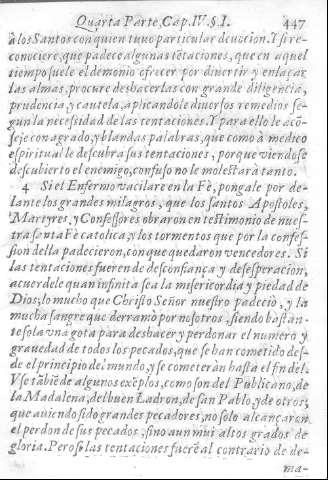 Quarta Parte, Cap. IV. §. I. 447
à los Santos con quien tuuo particular deuocion. Y si re-
conociere, que padece algunas tētaciones, que en aquel
tiempo suele el demonio ofrecer por diuertir y enlaçar
las almas, procure deshacerlas con grande diligencia,
prudencia, y cautela, aplicandole diuersos remedios se-
gun la necesidad de las tentaciones. Y para ello le acō-
seje con agrado, y blandas palabras, que como à medico
espiritual le descubra sus tentaciones, porque viendose
descubierto el enemigo, confuso no le molestarà tanto.
4 Si el Enfermo vacilare en la Fè, pongale por de-
lante los grandes milagros, que los santos Apostoles,
Martyres, y Confessores obraron en testimonio de nues-
tra santa Fè catolica, y los tormentos que por la confes-
sion della padecieron, con que quedaron vencedores. Si
las tentaciones fueren de desconfiança y desesperacion,
acuerdele quan infinita sea la misericordia y piedad de
Dios; lo mucho que Christo Señor nuestro padeciò, y la
mucha sangre que derramò por nosotros, siendo bastan-
te sola vna gota para deshacer y perdonar el numero y
grauedad de todos los pecados, que se han cometido des-
de el principio del mundo, y se cometeràn hasta el fin del.
Vse tābiē de algunos exēplos, como son del Publicano, de
la Madalena, del buen Ladron, de san Pablo, y de otros;
que auiendo sido grandes pecadores, no solo alcançaron
el perdon de sus pecados, sino aun mui altos grados de
gloria. Pero si las tentaciones fuerē al contrario de de-
ma-